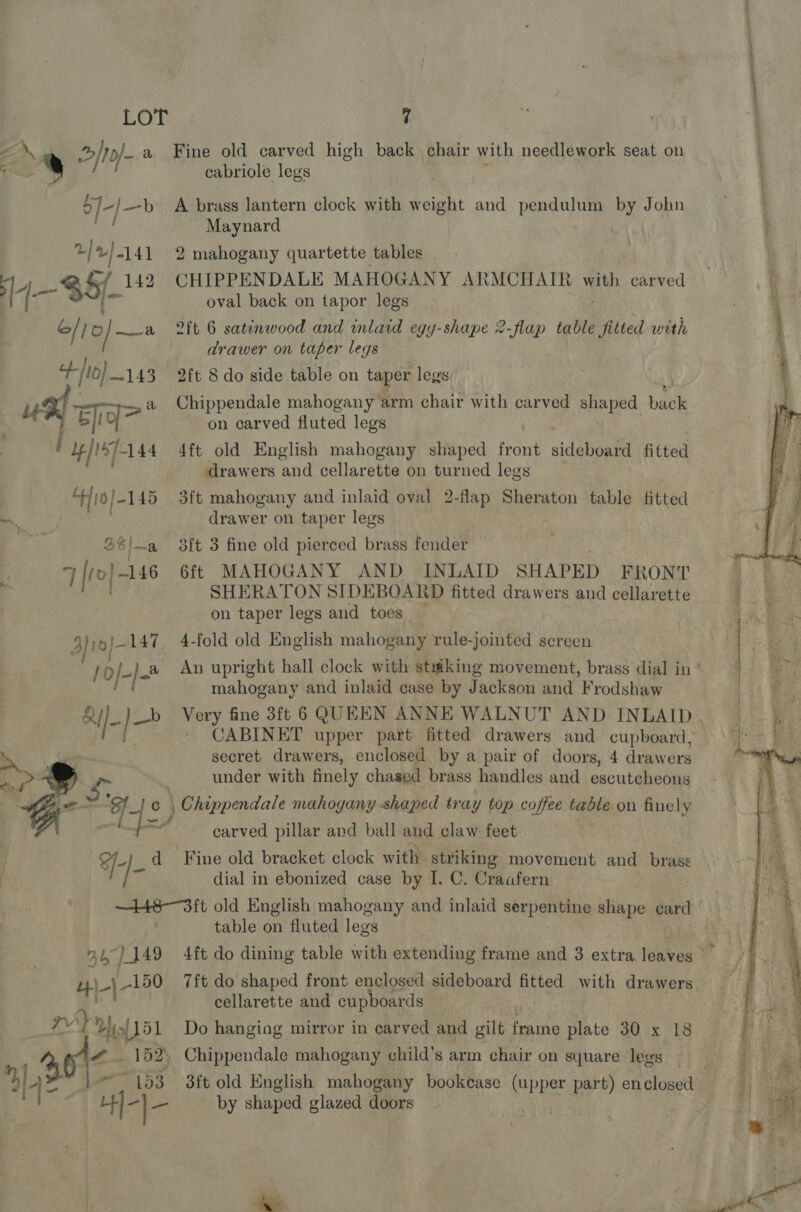 LOT 7
3/10/- a Fine old carved high back chair with needlework seat on
cabriole legs
5/-/- b A brass lantern clock with weight and pendulum by John
Maynard
2/2/- 141 2 mahogany quartette tables
142 CHIPPENDALE MAHOGANY ARMCHAIR with carved
oval back on tapor legs
6/10/- a 2ft 6 satinwood and inlaid egy-shape 2-flap table fitted with
drawer on taper legs
4/10/- 143 2ft 8 do side table on taper legs
a Chippendale mahogany arm chair with carved shaped back
on carved fluted legs
4/15/- 144 4ft old English mahogany shaped front sideboard fitted
drawers and cellarette on turned legs
4/10/- 145 3ft mahogany and inlaid oval 2-flap Sheraton table fitted
drawer on taper legs
a 3ft 3 fine old pierced brass fender
7/10/- 146 6ft MAHOGANY AND INLAID SHAPED FRONT
SHERATON SIDEBOARD fitted drawers and cellarette
on taper legs and toes
147 4-fold old English mahogany rule-jointed screen
10/-/- a An upright hall clock with striking movement, brass dial in
mahogany and inlaid case by Jackson and Frodshaw
b Very fine 3ft 6 QUEEN ANNE WALNUT AND INLAID
CABINET upper part fitted drawers and cupboard,
secret drawers, enclosed by a pair of doors, 4 drawers
under with finely chased brass handles and escutcheons
c Chippendale mahogany shaped tray top coffee table on finely
carved pillar and ball and claw feet
d Fine old bracket clock with striking movement and brass
dial in ebonized case by I. C. Craufern
148 3ft old English mahogany and inlaid serpentine shape card
table on fluted legs
149 4ft do dining table with extending frame and 3 extra leaves
4/-/- 150 7ft do shaped front enclosed sideboard fitted with drawers
cellarette and cupboards
151 Do hanging mirror in carved and gilt frame plate 30 x 18
152 Chippendale mahogany child's arm chair on square legs
153 3ft old English mahogany bookcase (upper part) enclosed
4/-/- by shaped glazed doors